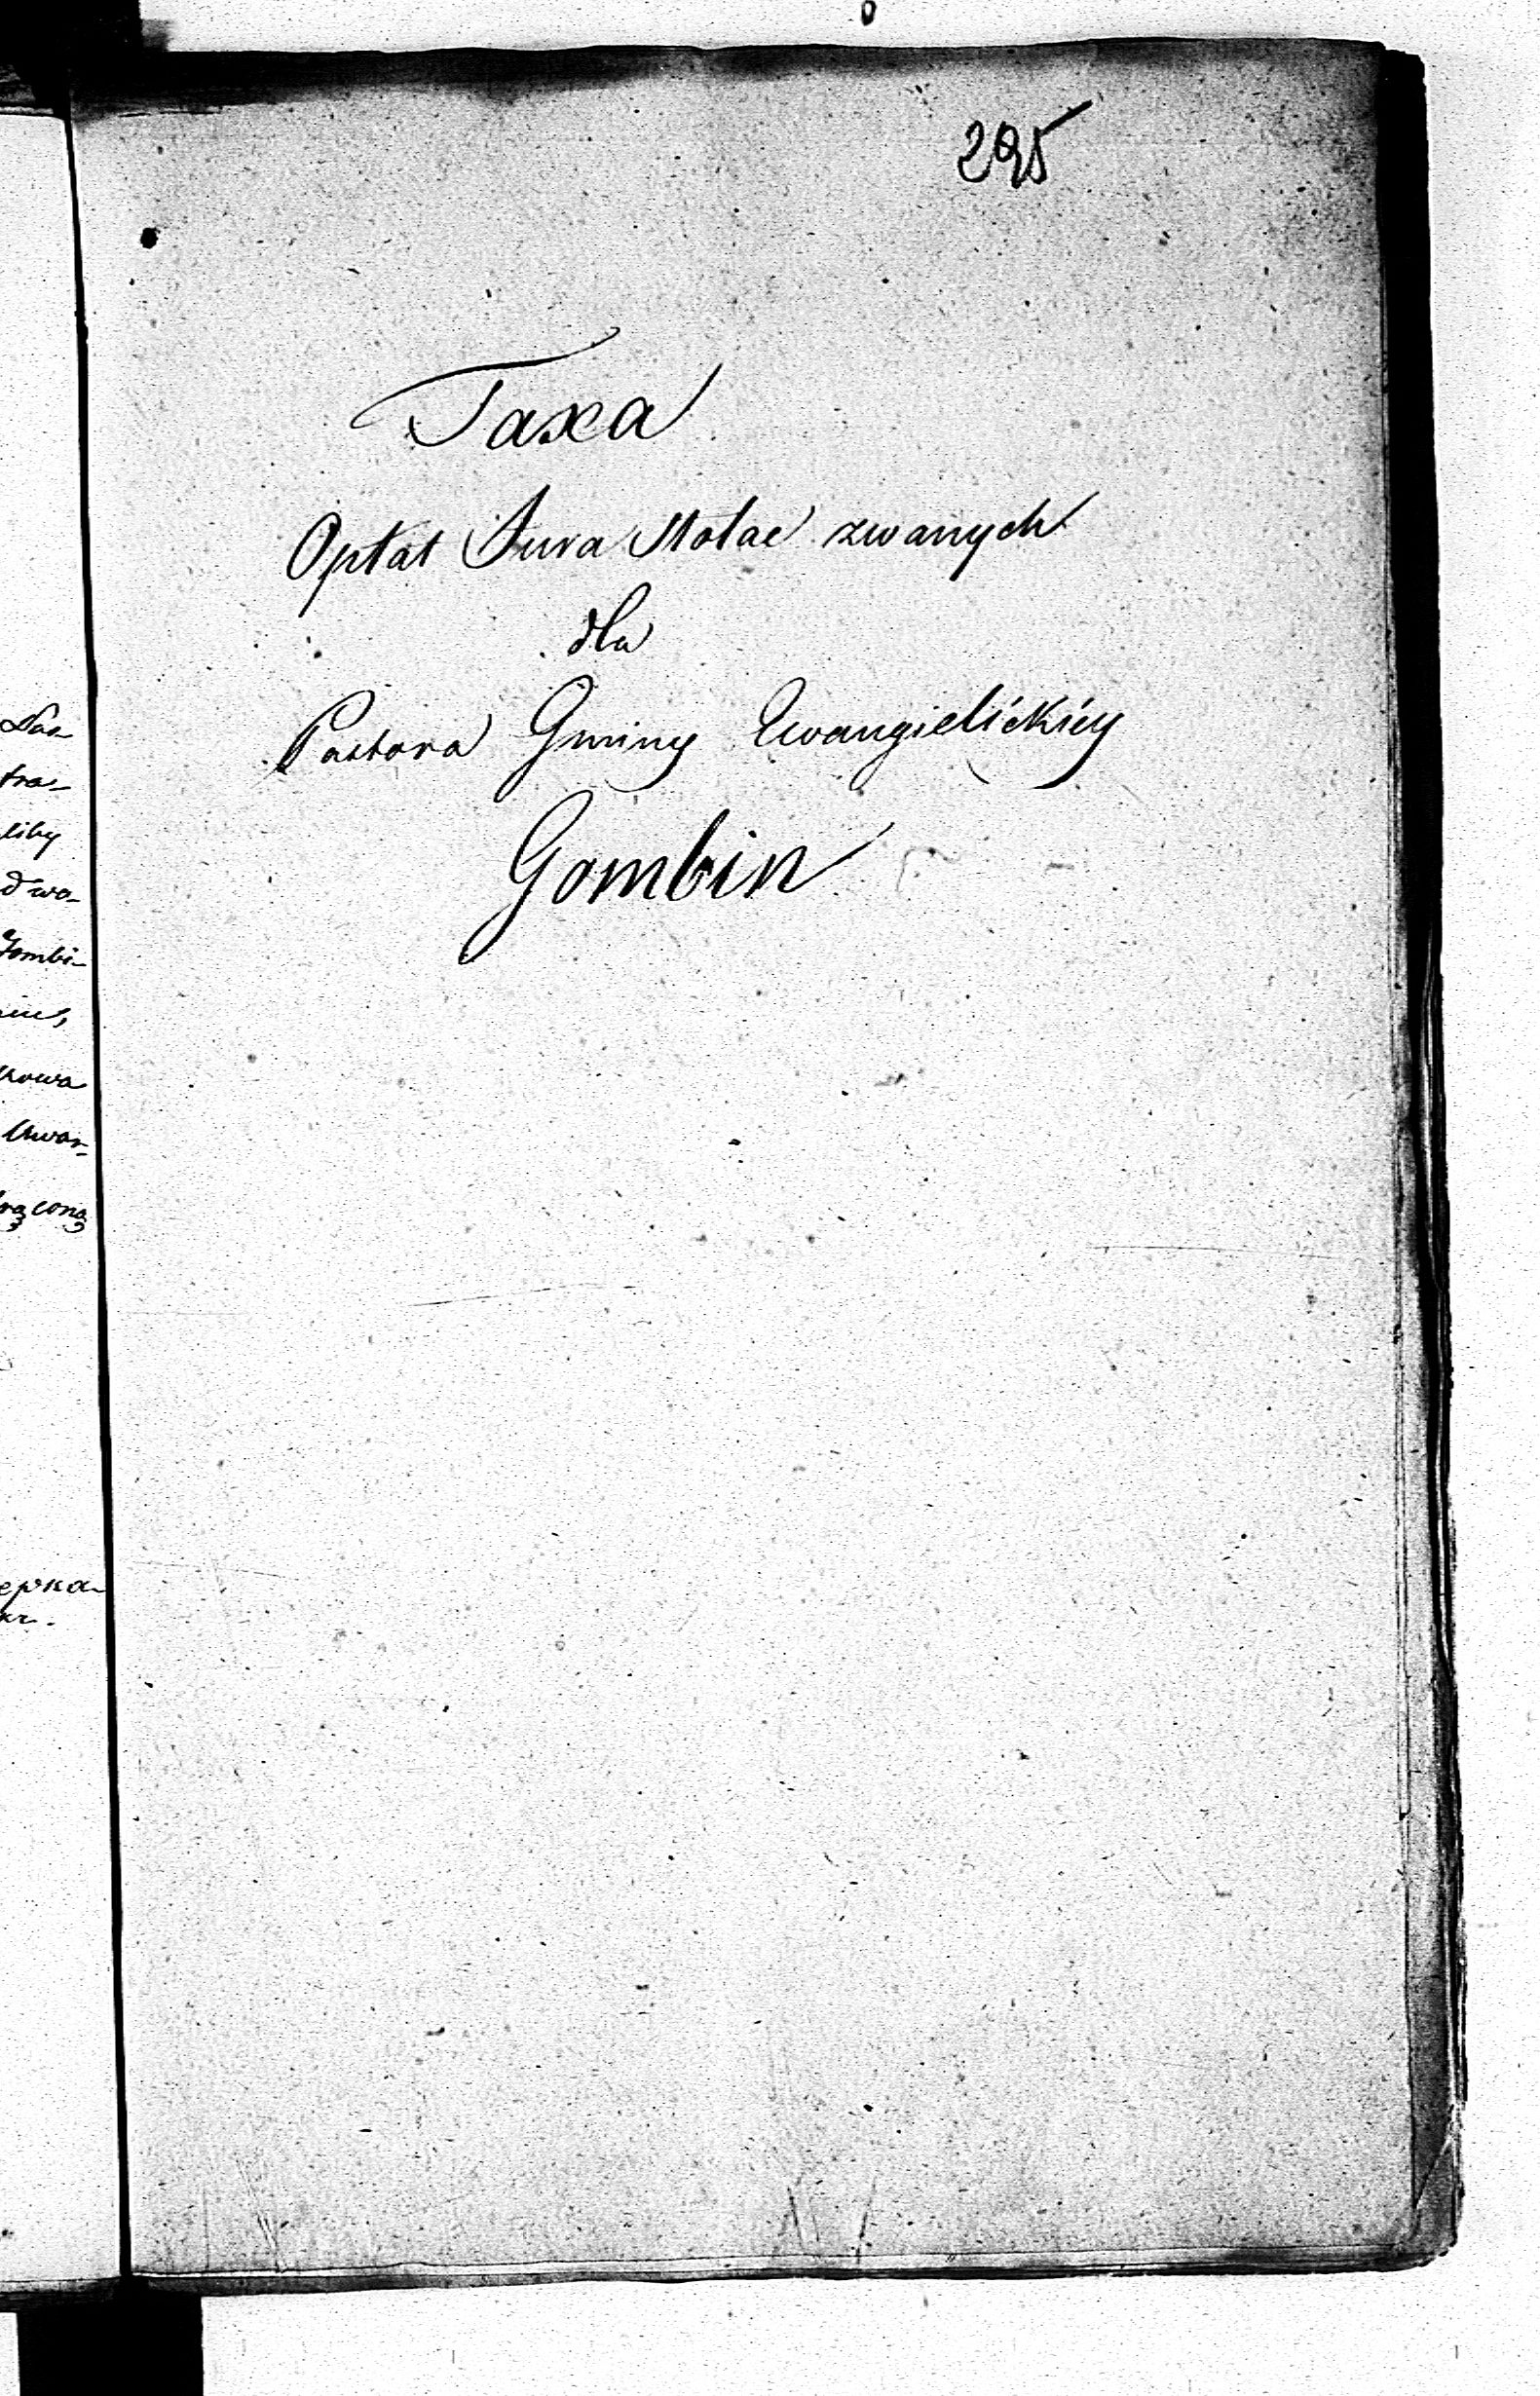 295
Taxa
Opłat Jura Stolae zwanych
dla
Pastora Gminy Ewangielickiey
Gombin
tra-
liby
dwo-
Gombi-
kowa
rąconą